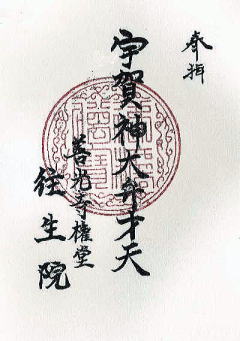 奉拝
宇賀神大弁才天
善光寺権堂
往生院